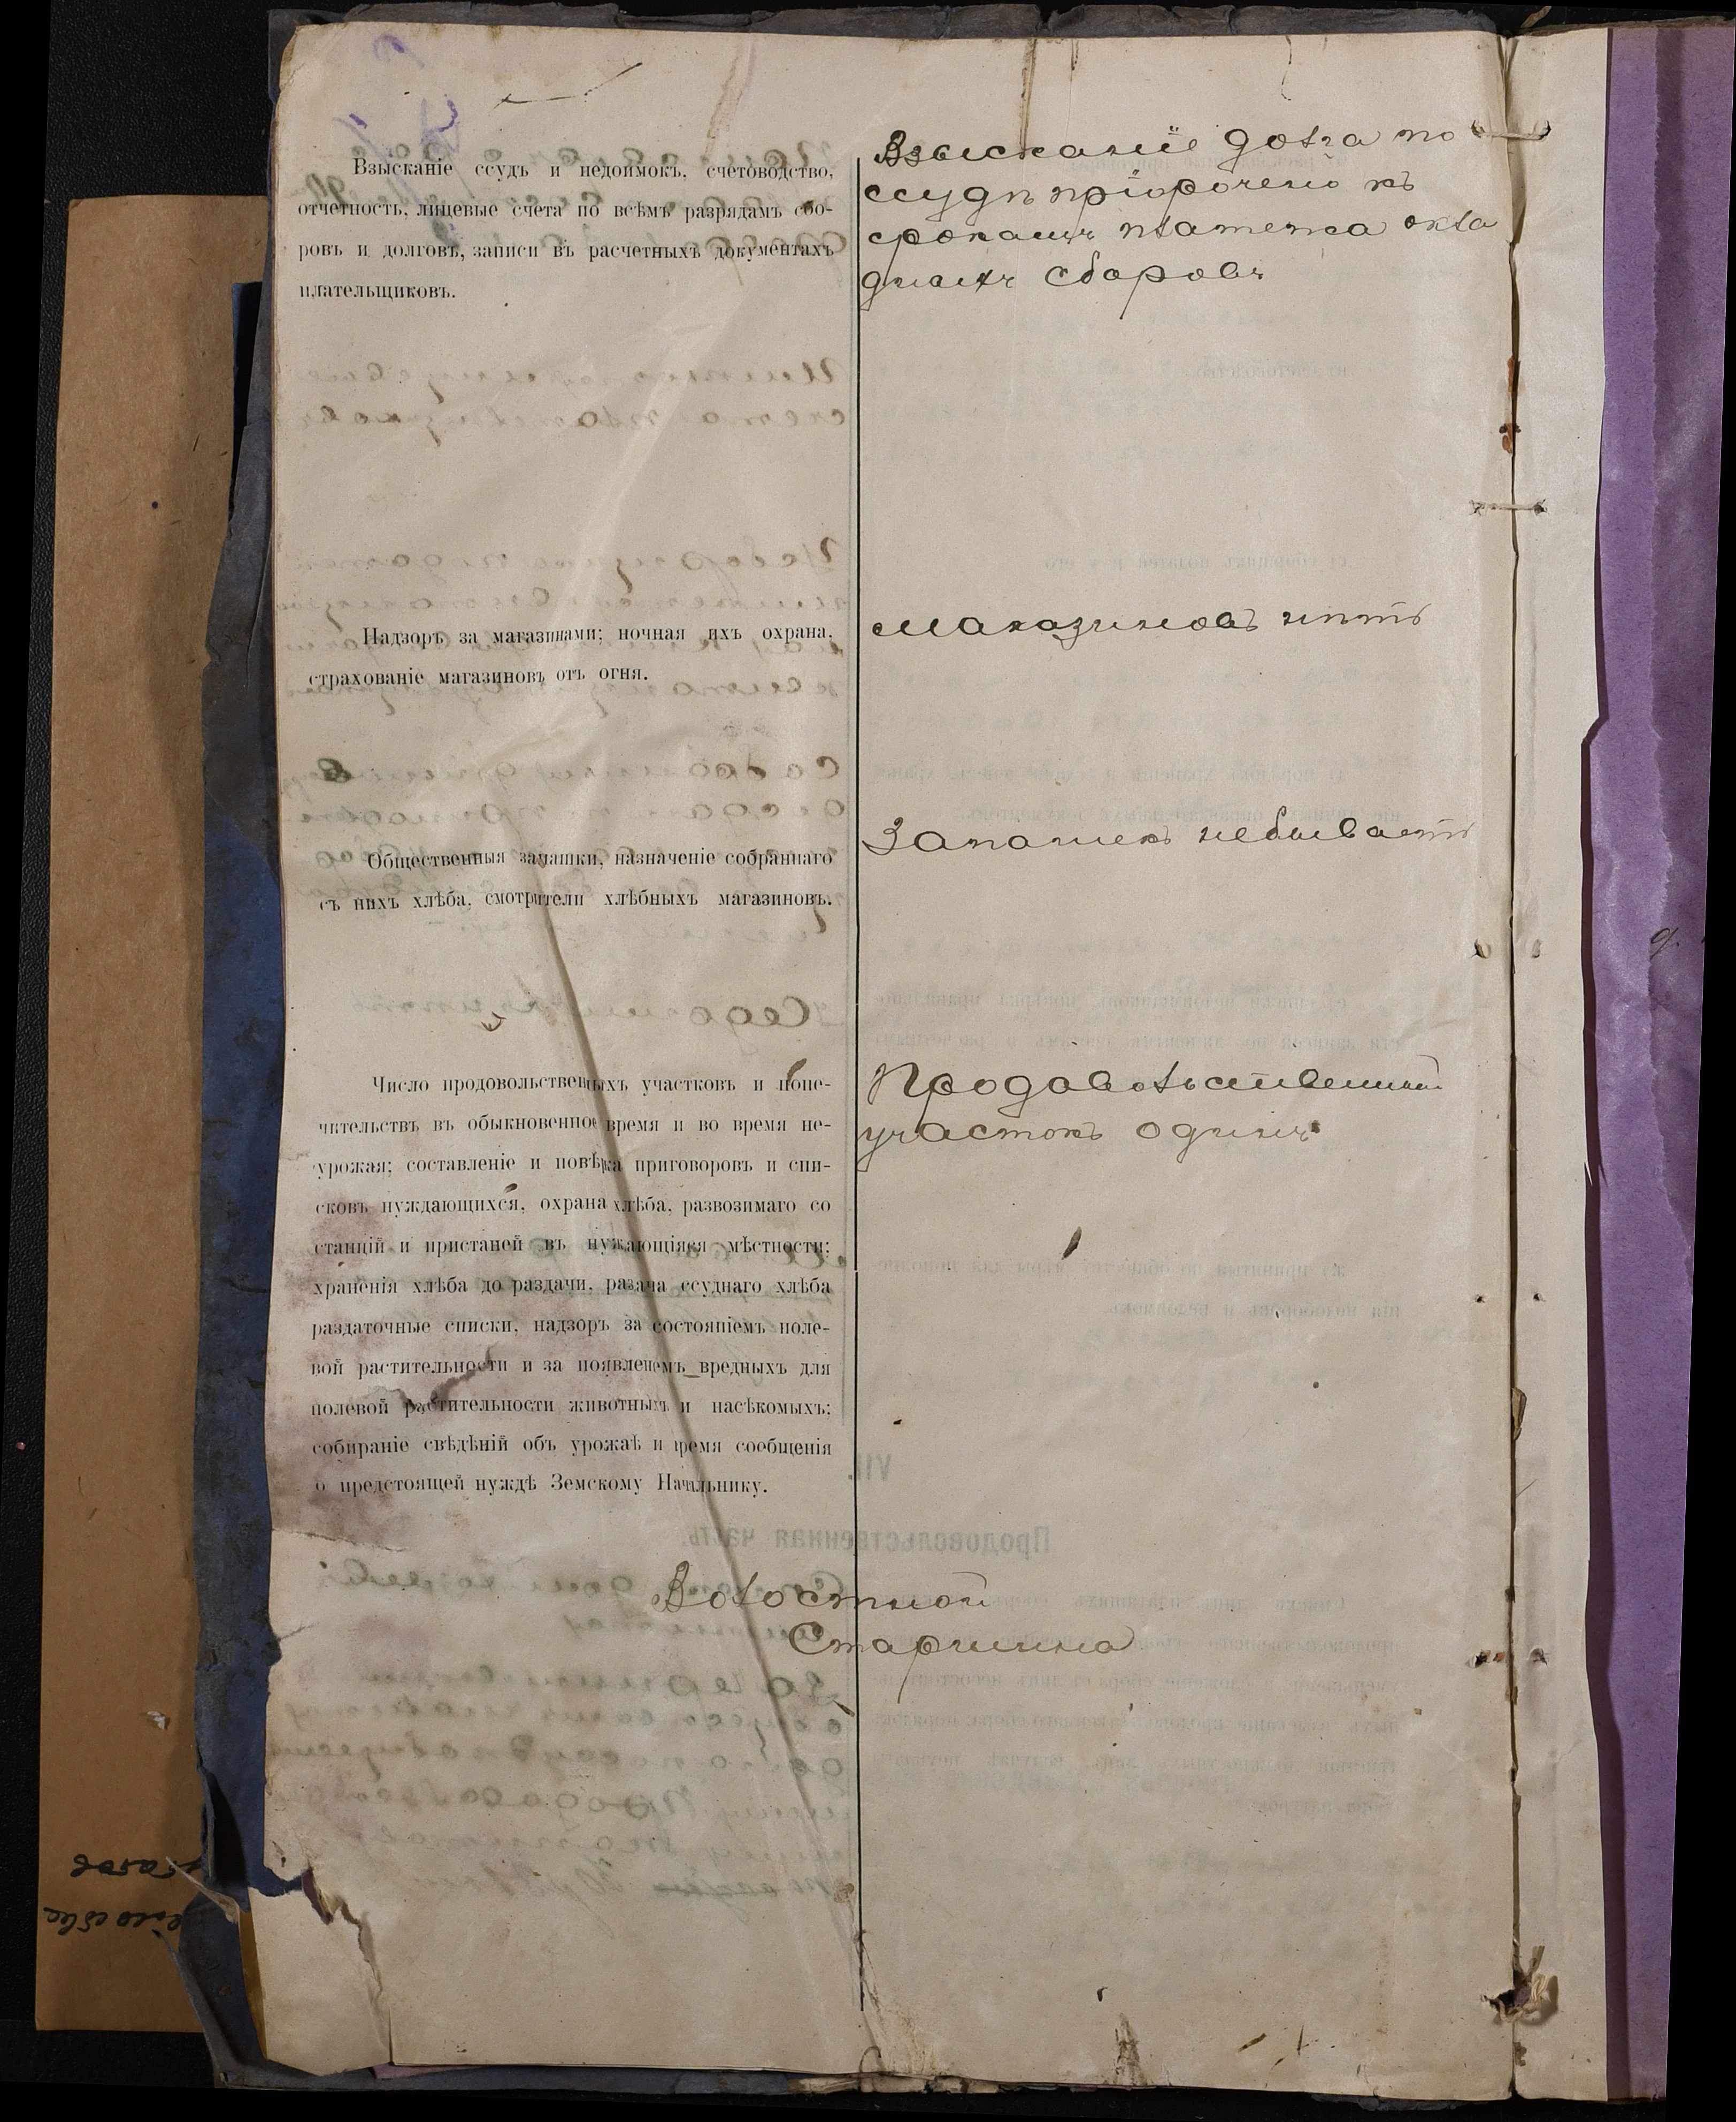 Взысканіе ссудъ и недоимокъ, счетоводство,
отчетность, лицевые счета по всѣмъ разрядамъ сбо-
ровъ и долговъ, записи въ расчетныхъ документахъ
плательщиковъ.
Взысканіе долга по
ссудѣ пріорочено къ
срокамъ платежа окла
дныхъ сборовъ
Надзоръ за магазинами; ночная ихъ охрана,
страхованіе магазиновъ отъ огня.
Маказиновъ нѣтъ
Общественныя запашки, назначеніе собраннаго
съ нихъ хлѣба, смотрители хлѣбныхъ магазиновъ.
Запашекъ небываетъ
Число продовольственныхъ участковъ и попе-
чительствъ въ обыкновенное время и во время не-
урожая; составленіе и повѣка приговоровъ и спи-
сковъ нуждающихся, охрана хлѣба, развозимаго со
станцій и пристаней въ нужающіяся мѣстности;
храненія хлѣба до раздачи, разача ссуднаго хлѣба
раздаточные списки, надзоръ за состояніемъ поле-
вой растительности и за появленемъ вредныхъ для
полевой растительности животныхъ и насѣкомыхъ;
собираніе свѣдѣній объ урожаѣ и время сообщенія
о предстоящей нуждѣ Земскому Начальнику.
Продовольственный
участокъ одинъ
Волостной
Старшина